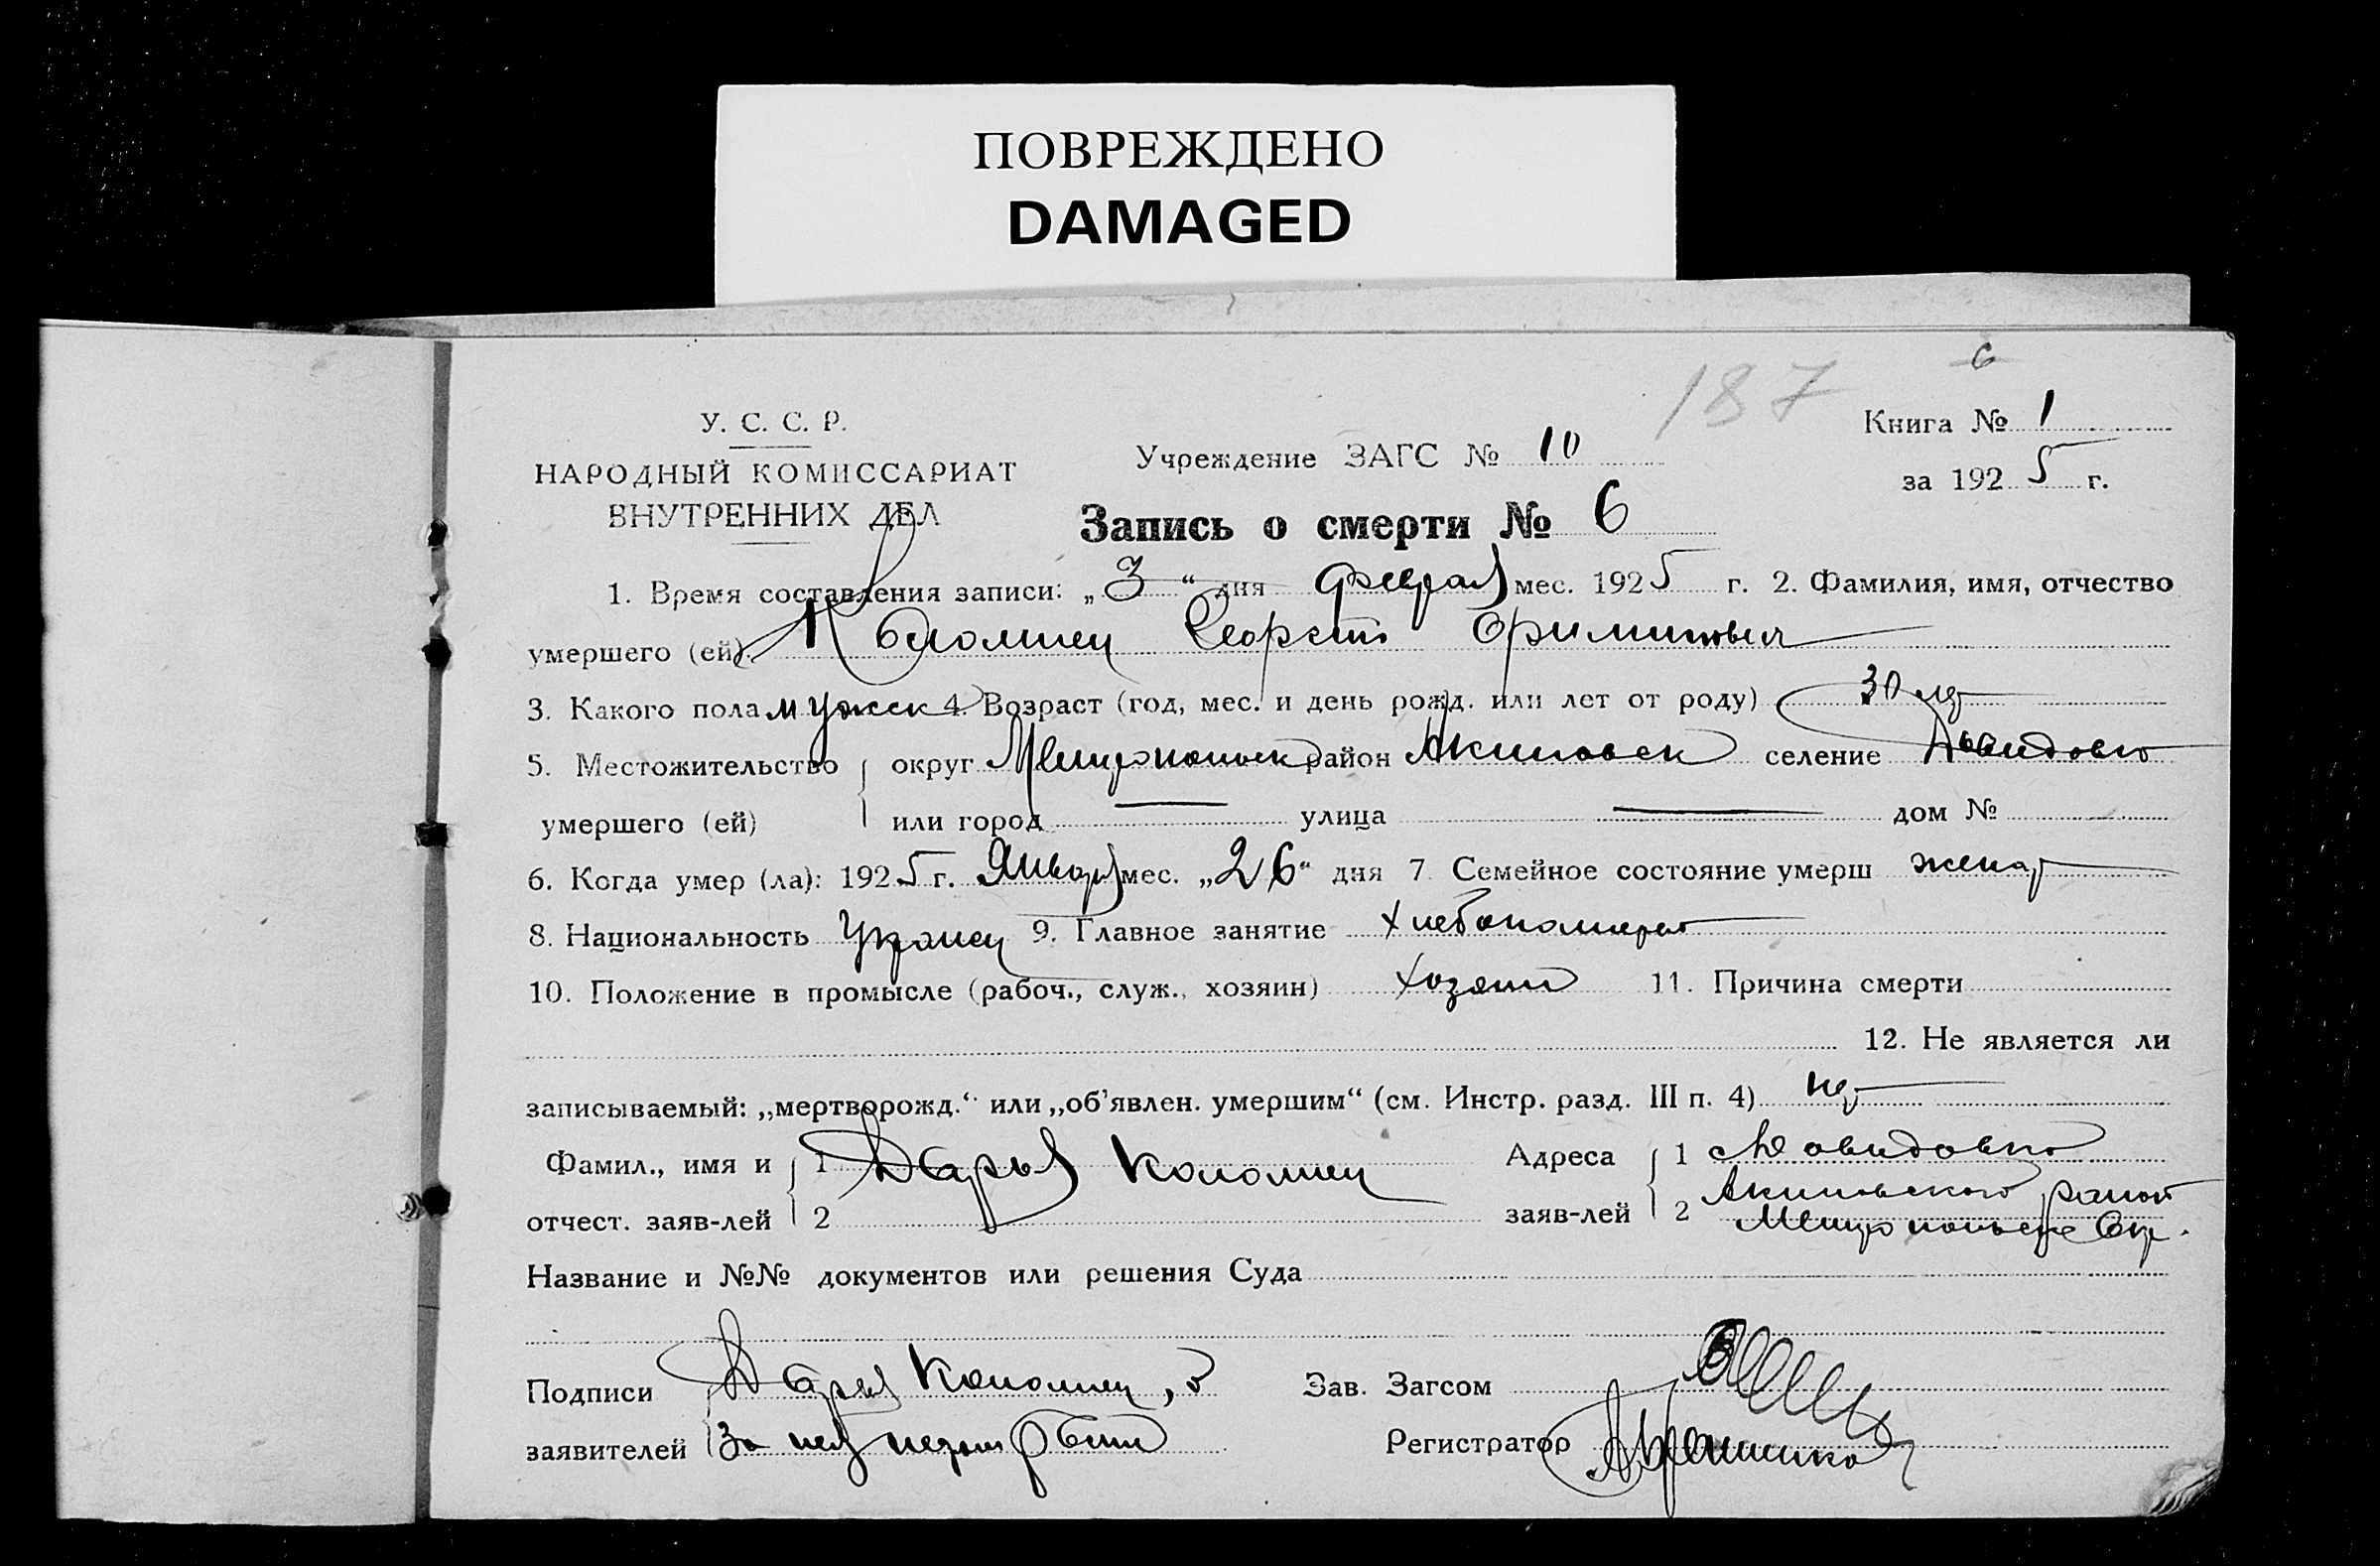 ПОВРЕЖДЕНО
DAMAGED
6
187
У. С. С. Р.
НАРОДНЫЙ КОМИССАРИАТ
ВНУТРЕННИХ ДЕЛ
Учреждение ЗАГС № 10
Книга № 1
за 1925 г.
Запись о смерти № 6
1. Время составления записи: „3“ дня Февраля мес. 1925 г. 2. Фамилия, имя, отчество
умершего (ей). Коломиец Георгий
3. Какого пола мужск 4. Возраст (год, мес. и день рожд. или лет от роду) 30 лет
5. Местожительство округ Мелитопольск район Акимовск селение Давидовка
умершего (ей) или город — улица — дом №
6. Когда умер (ла): 1925 г. Января мес. „26“ дня 7 Семейное состояние умерш женат
8. Национальность Украинец 9. Главное занятие хлебопашество
10. Положение в промысле (рабоч., служ., хозяин) хозяин 11. Причина смерти
12. Не является ли
записываемый: „мертворожд.“ или „об’явлен. умершим“ (см. Инстр. разд. III п. 4) нет
Фамил., имя и 1 Дарья Коломиец Адреса 1 Давидовка
отчест. заяв-лей 2 заяв-лей 2 Акимовского район
Мелитопольске Окр.
Название и №№ документов или решения Суда
Подписи Дарья Коломиец, Зав. Загсом
заявителей За нея Регистратор